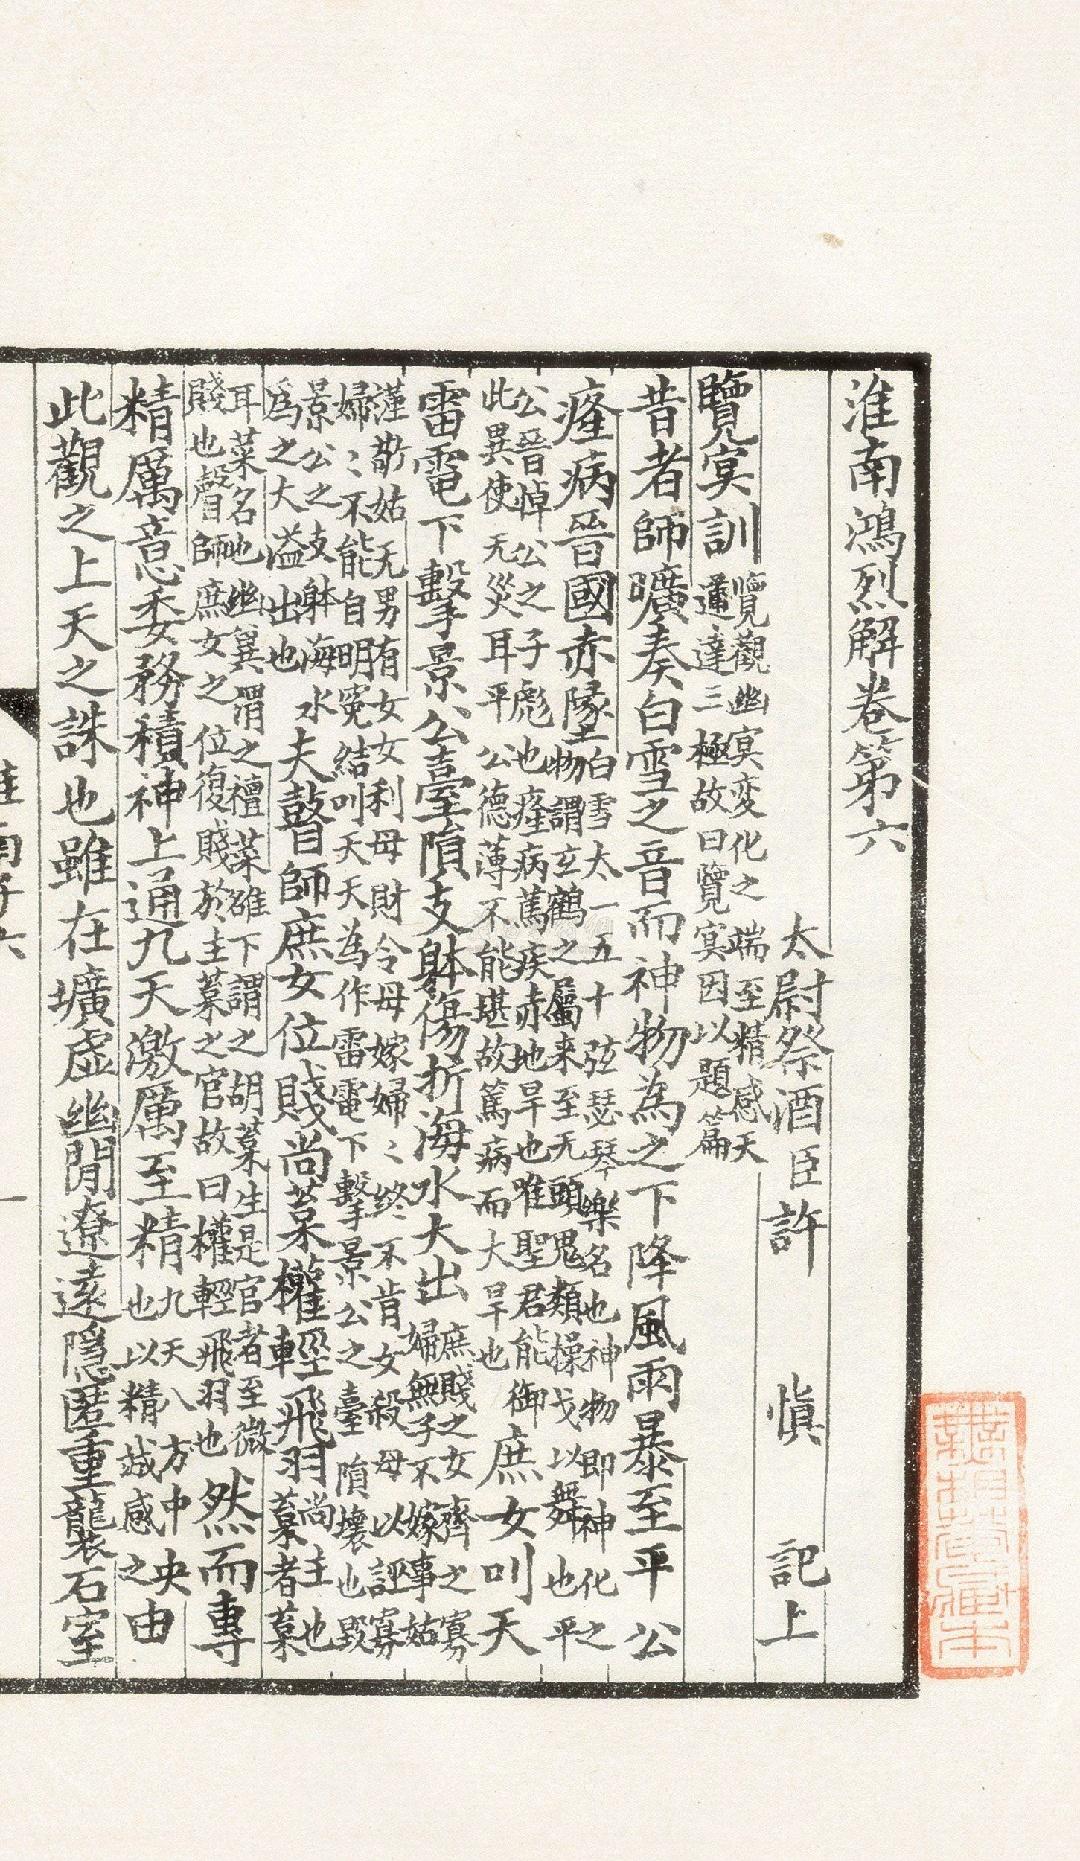 淮南鴻烈解卷第六
太尉祭酒臣許 慎 記上
覽冥訓 覽觀幽冥変化之端至精感天
通達三極故曰覽冥因以題篇
昔者師曠奏白雪之音而神物為之下降風雨暴至平公
癃病晉國赤墬 白雪太一五十弦瑟琴樂名也神物即神化之
物謂玄鶴之屬来至无頭鬼類操戈以舞也平
公晉悼公之子彪也癃病篤疾赤地旱也唯聖君能御
此異使无災耳平公德薄不能堪故篤病而大旱也 庶女叫天
雷電下擊景公臺隕支躰傷折海水大出 庶賤之女齊之寡
婦無子不嫁事姑
謹敬姑无男有女女利母財令母嫁婦婦終不肯女殺母以誣寡
婦〻不能自明冤結叫天天為作雷電下擊景公之臺隕壞也毀
景公之支躰海水
為之大溢出也 夫瞽師庶女位賤尚葈權輕飛羽 尚主也
葈者葈
耳菜名也幽冀謂之襢菜雒下謂之胡葈生是官者至微
賤也瞽師庶女之位復賤於主葈之官故曰權輕飛羽也 然而專
精厲意委務積神上通九天激厲至精 九天八方中央
也以精誠感之 由
此觀之上天之誅也雖在壙虛幽閒遼遠隱匿重襲石室